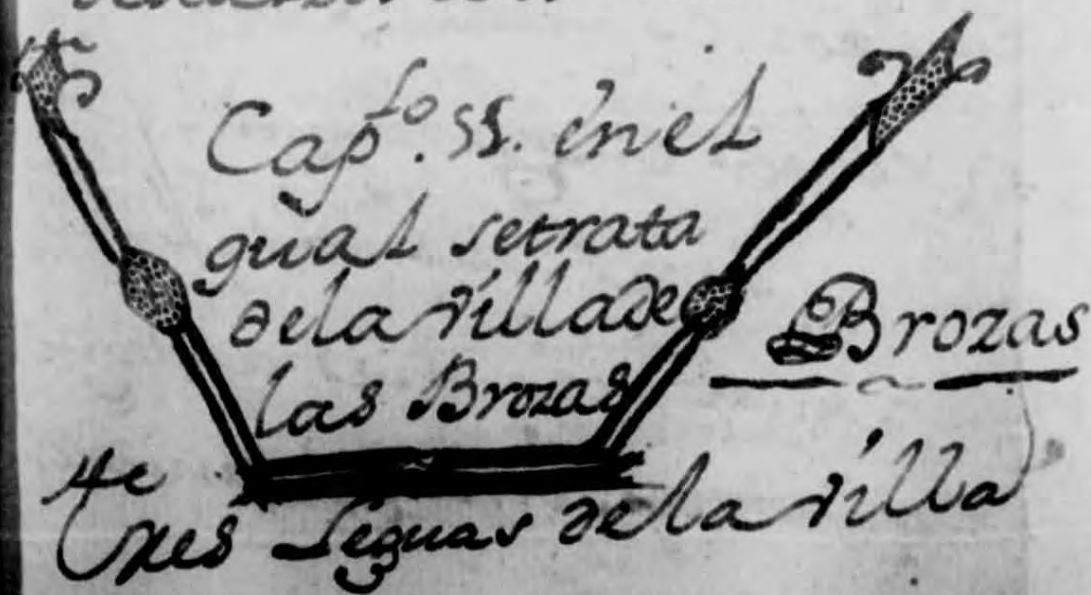 Cap.to 55. en el
qual se trata
de la villa de
las Brozas
Brozas
Tres Leguas de la villa